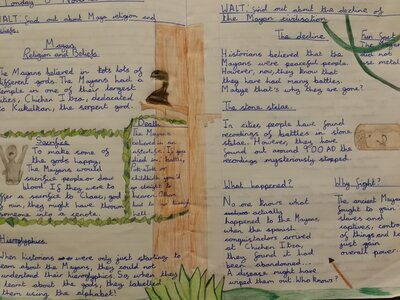 Monday
WALT: Find out about Maya religion and
beliefs.
Mayas
Religion and Beliefs
The Mayans believed in lots lots of
different gods. The Mayans had a
temple in one of their largest
cities, Chicken Itza, dedacated
to Kukulkan, the serpent god.
Sacrafice
To make some of
the gods happy,
The Mayans would
sacrafice people or
blood. If they were to
offer a sacrafice to Chaac, god
of rain, they might have thrown
someone into a senote.
Death
The Mayans
believed in an
If you
died in battle,
or
childbirth, you'd
go straight to
heaven.
Hieroglyphics
When historians were only just starting to
learn about the Mayans, they could not
understand their hieroglyphics. So, when they
learnt about the gods, they labelled
them using the alphabet!
WALT: Find out about the decline of
the Mayan civilisation.
The decline
Historians believed that the
Mayans were peaceful people.
However, now, they know that
they have had many battles.
Maybe that's why they are gone?
Fun Fact
The
did not
use metal
The stone stelae
In cities people have found
recordings of battles in stone
stelae. However, they have
found out around 900 AD the
recordings mysteriously stopped.
What happened?
No one knows what
actually
happened to the Mayans
when the spanish
conquistadors arrived
at Chicken Itza,
they found it had
been abandoned...
A disease might have
wiped them out. Who knows?
Why fight?
The ancient Mayans
fought to gain
slaves and
captives, control
of things and to
just gain
overall power.